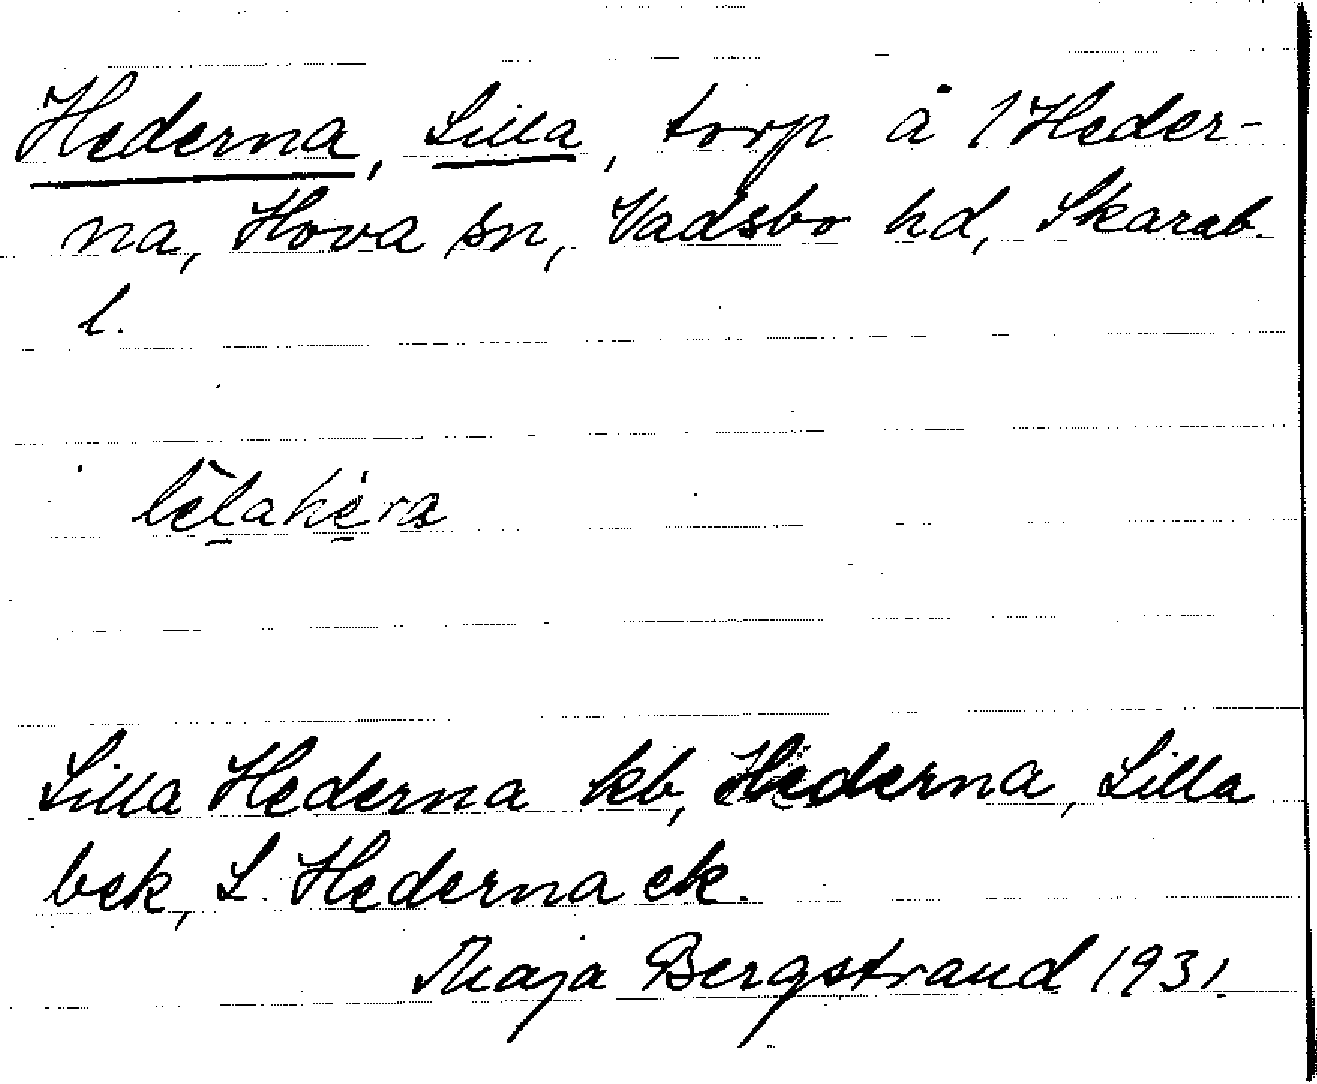 Hederna, Lilla, torp å 1 Heder-
na, Hova sn, Vadsbo hd, Skarab.
l.
Lilla Hederna kb, Hederna, Lilla
bek, L. Hederna ek.
Maja Bergstrand 1931